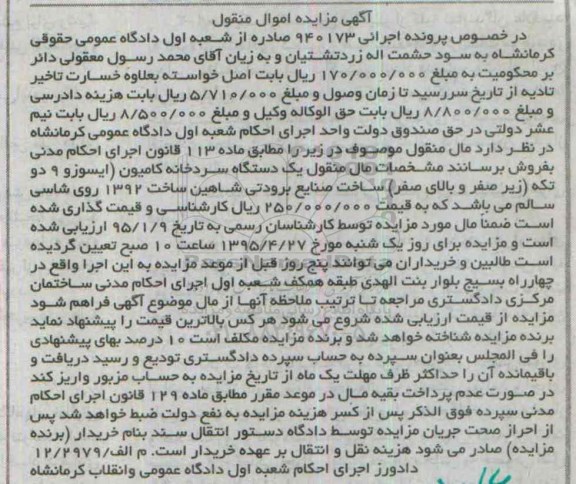 آگهی مزایده اموال منقول
در خصوص پرونده اجرائی ۹۴۰۱۷۳ صادره از شعبه اول دادگاه عمومی حقوقی
کرمانشاه به سود حشمت اله زردتشتیان و به زیان آقای محمد رسول معقولی دائر
بر محکومیت به مبلغ ۱۷۰/۰۰۰/۰۰۰ ریال بابت اصل خواسته بعلاوه خسارت تاخیر
تادیه از تاریخ سررسید تا زمان وصول و مبلغ ۵/۷۱۰/۰۰۰ ریال بابت هزینه دادرسی
و مبلغ ۸/۸۰۰/۰۰۰ ریال بابت حق الوکاله وکیل و مبلغ ۸/۵۰۰/۰۰۰ ریال بابت نیم
عشر دولتی در حق صندوق دولت واحد اجرای احکام شعبه اول دادگاه عمومی کرمانشاه
در نظر دارد مال منقول موصوف در زیر را مطابق ماده ۱۱۳ قانون اجرای احکام مدنی
بفروش برسانند مشخصات مال منقول یک دستگاه سردخانه کامیون (ایسوزو ۹ دو
تکه (زیر صفر و بالای صفر) ساخت صنایع برودتی شاهین ساخت ۱۳۹۲ روی شاسی
سالم می باشد که به قیمت ۲۵۰/۰۰۰/۰۰۰ ریال کارشناسی و قیمت گذاری شده
است ضمنا مال مورد مزایده توسط کارشناسان رسمی به تاریخ ۹۵/۱/۹ ارزیابی شده
است و مزایده برای روز یک شنبه مورخ ۱۳۹۵/۴/۲۷ ساعت ۱۰ صبح تعیین گردیده
است طالبین و خریداران می توانند پنج روز قبل از موعد مزایده به این اجرا واقع در
چهارراه بسیج بلوار بنت الهدی طبقه همکف شعبه اول اجرای احکام مدنی ساختمان
مرکزی دادگستری مراجعه تا ترتیب ملاحظه آنها از مال موضوع آگهی فراهم شود
مزایده از قیمت ارزیابی شده شروع می شود هر کس بالاترین قیمت را پیشنهاد نماید
برنده مزایده شناخته خواهد شد و برنده مزایده مکلف است ۱۰ درصد بهای پیشنهادی
را فی المجلس بعنوان سپرده به حساب سپرده دادگستری تودیع و رسید دریافت و
باقیمانده آن را حداکثر ظرف مهلت یک ماه از تاریخ مزایده به حساب مزبور واریز کند
در صورت عدم پرداخت بقیه مال در موعد مقرر مطابق ماده ۱۲۹ قانون اجرای احکام
مدنی سپرده فوق الذکر پس از کسر هزینه مزایده به نفع دولت ضبط خواهد شد پس
از احراز صحت جریان مزایده توسط دادگاه دستور انتقال سند بنام خریدار (برنده
مزایده) صادر می شود هزینه نقل و انتقال بر عهده خریدار است. م الف/۱۲/۲۹۷۹
دادورز اجرای احکام شعبه اول دادگاه عمومی وانقلاب کرمانشاه